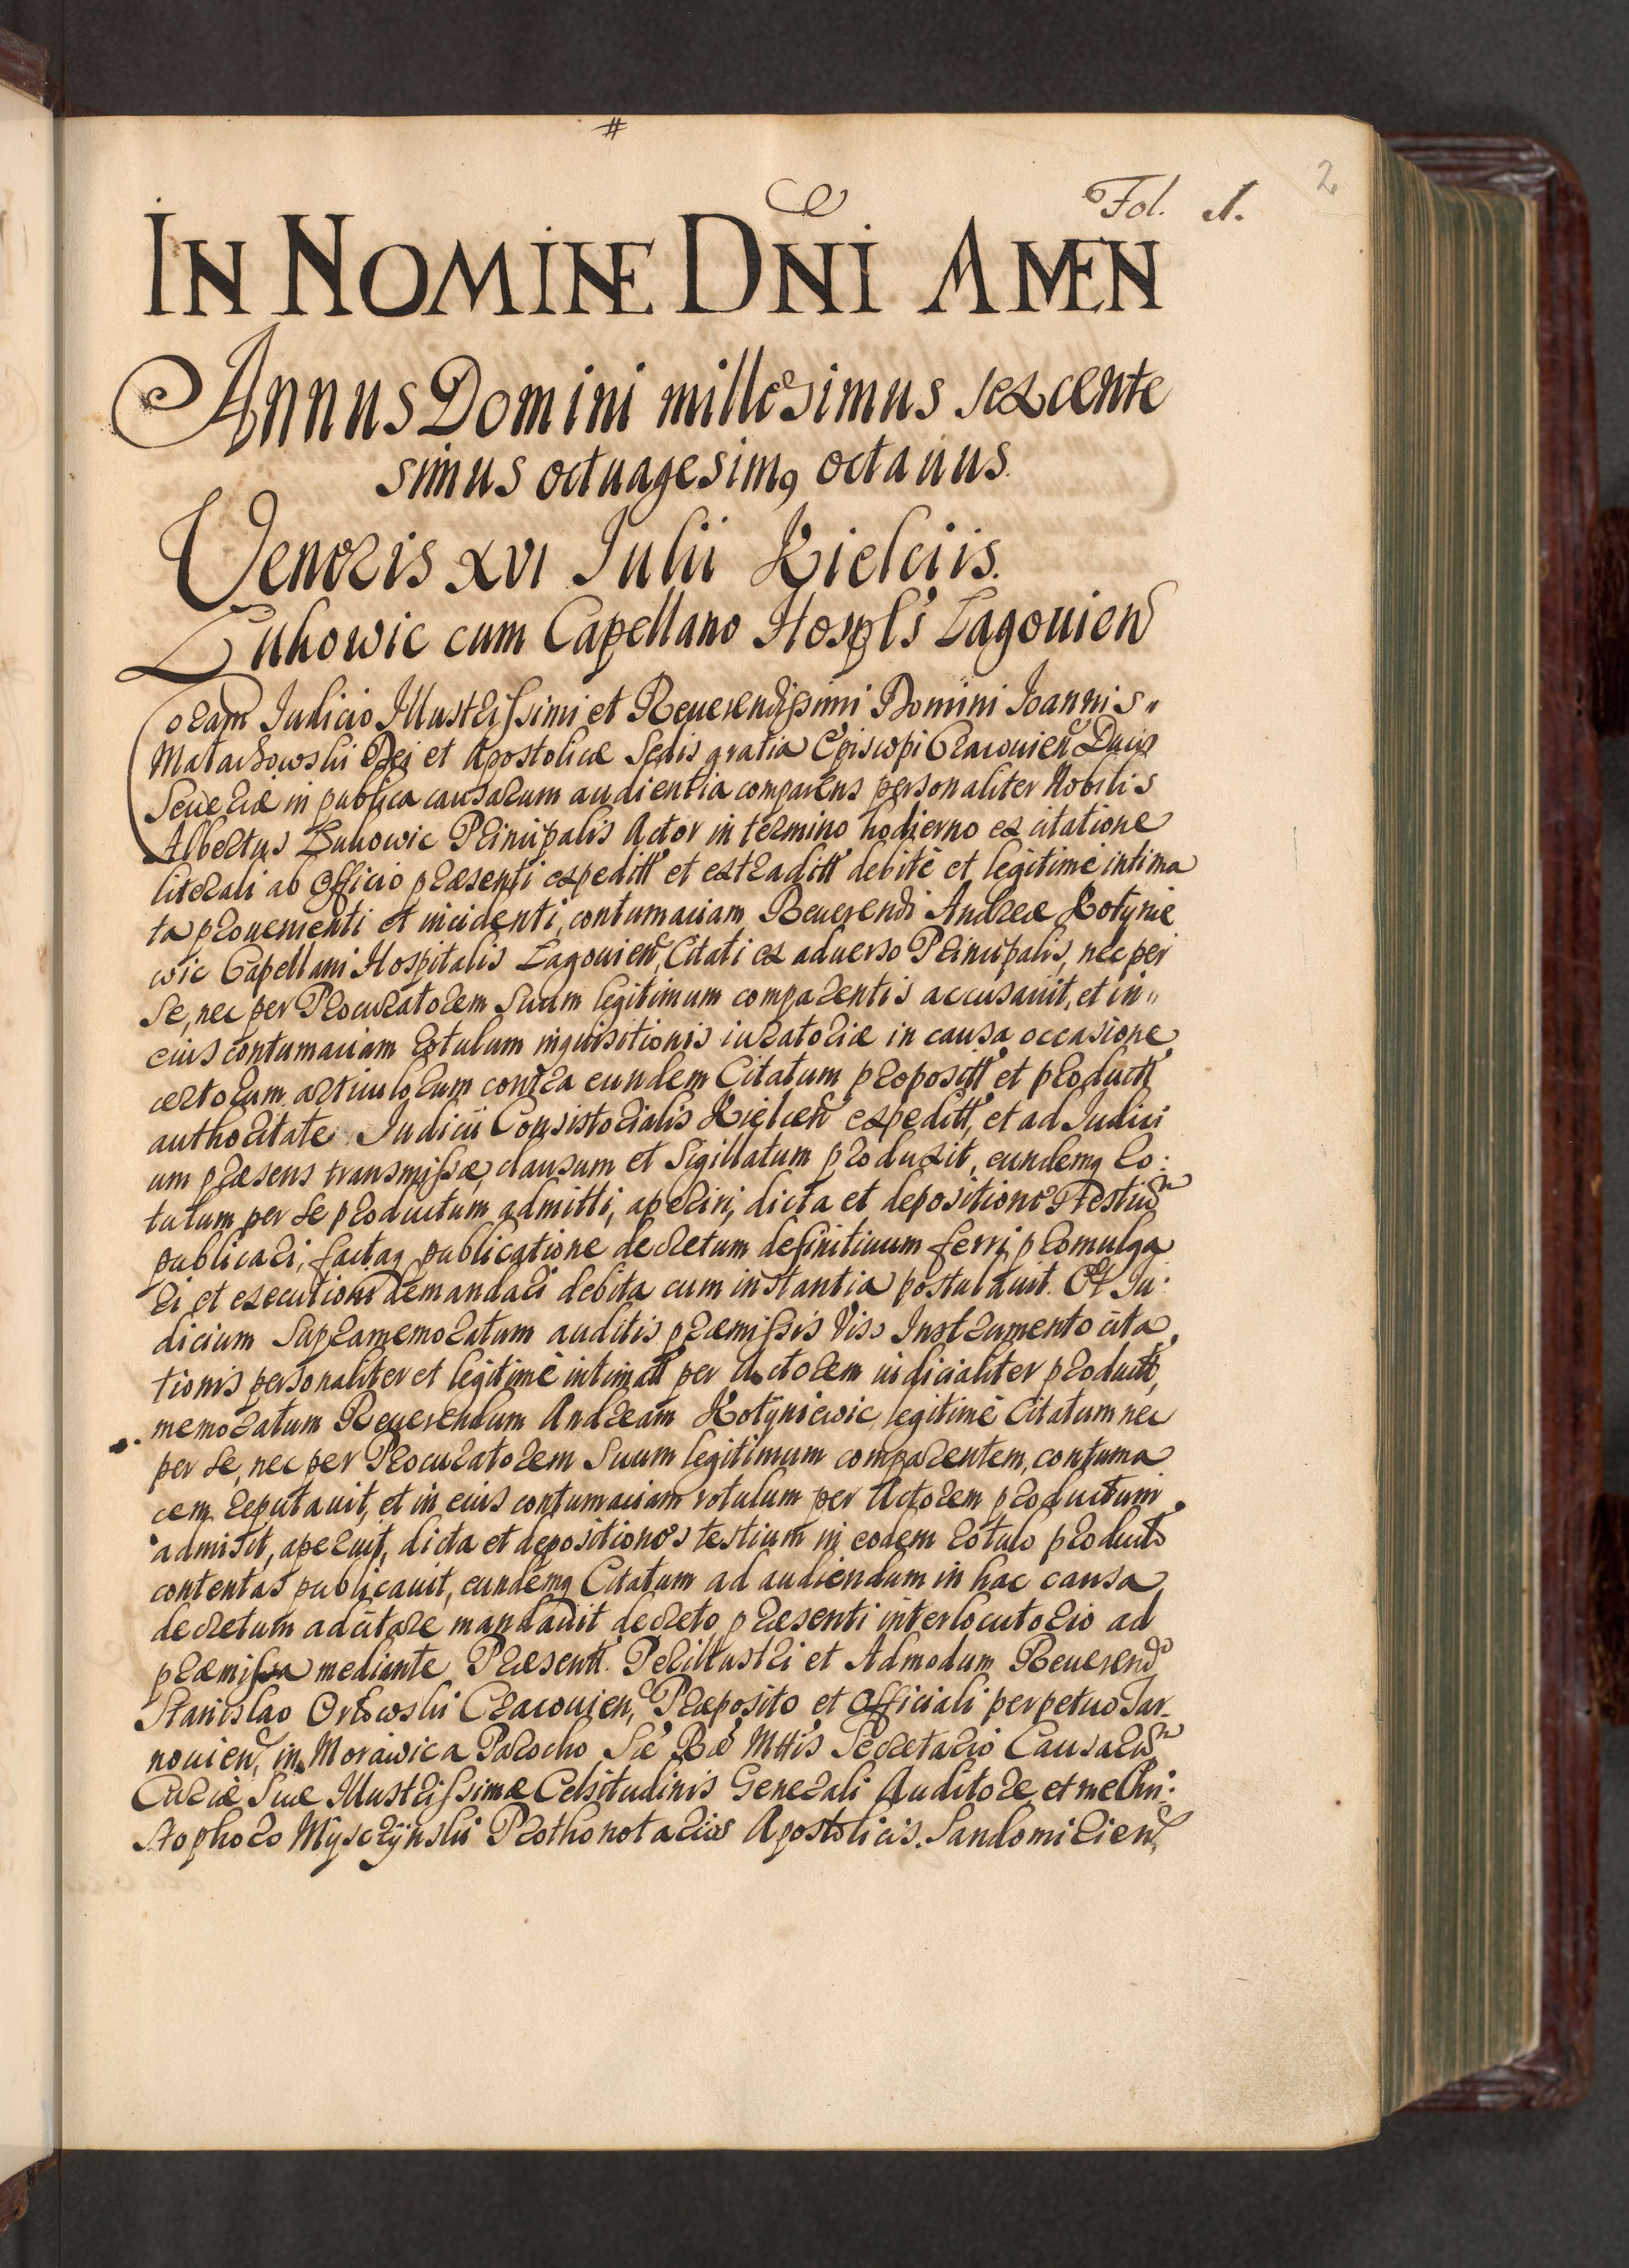 #
Fol. 1.
2
IN NOMINE DNI AMEN
Annus Domini millesimus sexcente
simus octuagesim9 octauus.
Veneris XVI Iulii Kielciis.
Zukowic cum Capellano Hospls Lagouien
Coram Iudicio Illustrissimi et Reuerendissimi Domini Ioannis"
Malachowski Dei et Apostolicæ Sedis gratia Episcopi Cracouien Ducis
Seueriæ in publica causarum audientia comparens personaliter Nobilis
Albertus Zukowic Principalis Actor in termino hodierno ex citatione
literali ab Officio præsenti expeditt et extraditt debitè et legitimè intima
ta prouenienti et incidenti, contumaciam Reuerendi Andreæ Kotynie
wic Capellani Hospitalis Lagouien, Citati ex aduerso Principalis, nec per
se, nec per Procuratorem suum legitimum comparentis accusauit, et in"
eius contumaciam rotulum inquisitionis iuratoriæ in causa occasione
certorum articulorum contra eundem Citatum propositt et productt
authoritate Iudicii Consistorialis Kielcen expeditt, et ad Iudici
um præsens transmissæ, clausum et sigillatum produxit, eundemq ro:
tulum per se productum admitti, aperiri, dicta et depositiones Testiu
publicari, factaq publicatione decretum definitiuum ferri promulga
ri et executioni demandari debita cum instantia postulauit. Et Iu:
dicium supramemoratum auditis præmissis viso Instrumento cita
tionis personaliter et legitimè intimatt per Actorem iudicialiter productt,
memoratum Reuerendum Andream Kotyniewic legitimè Citatum nec
per se, nec per Procuratorem suum legitimum comparentem, contuma
cem reputauit, et in eius contumaciam rotulum per Actorem productum
admisit, aperuit, dicta et depositiones testium in eodem rotulo producto
contentas publicauit, eundemq Citatum ad audiendum in hac causa
decretum adcitare mandauit decreto præsenti interlocutorio ad
præmissa mediante. Præsentt. Perillustri et Admodum Reuerend
Stanislao Orlowski Cracouien, Præposito et Officiali perpetuo Tar-
nouien, in Morawica Parocho Sæ Ræ Mttis Secretario Causaru
Curiæ Suæ Illustrissimæ Celsitudinis Generali Auditore, et me Chri:
stophoro Myszczynski Prothonotariis Apostolicis. Sandomirien,